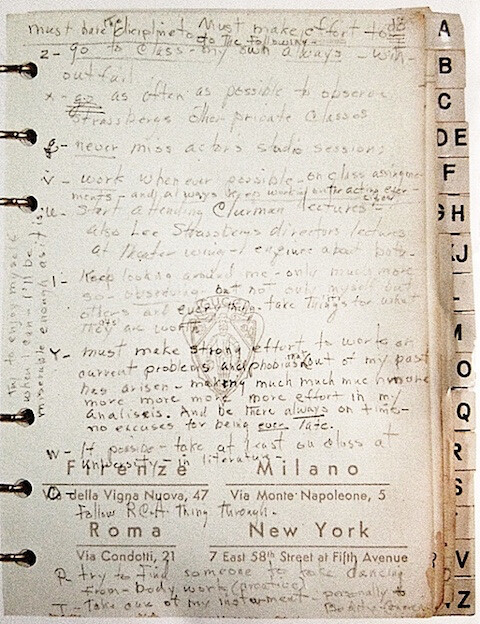 must have the discipline to do the following -
Must make effort to do
z - go to class - my own always - with-
out fail
x - go as often as possible to observe
Strassbergs other private classes
g - never miss actors studio sessions
v - work whenever possible - on class assigne-
ments - and always keep working on the acting exer-
cises
u - start attending Clurman lectures -
also Lee Strassbergs directors lectures
at theater wing - enquire about both -
l - Keep looking around me - only much more
so - observing - but not only myself but
others and everything - take things for what
they are worth
y - must make strong effort to work on
current problems and phobias that out of my past
has arisen - making much much much more
more more more more effort in my
analisis. And be there always on time -
no excuses for being ever late.
w - If possible - take at least one class at
university - in literature -
o -
follow RCA thing through.
p - try to find someone to take dancing
from - body work (creative)
t - Take care of my instrument - personally &
try to enjoy myself
when I can - I'll be
miserable enough as it is.
GUCCI
Firenze
Milano
della Vigna Nuova, 47
Via Monte Napoleone, 5
Roma
New York
Via Condotti, 21
7 East 58th Street at Fifth Avenue
A
B
C
DE
F
GH
KJ
L
M
O
Q
R
S
V
Z